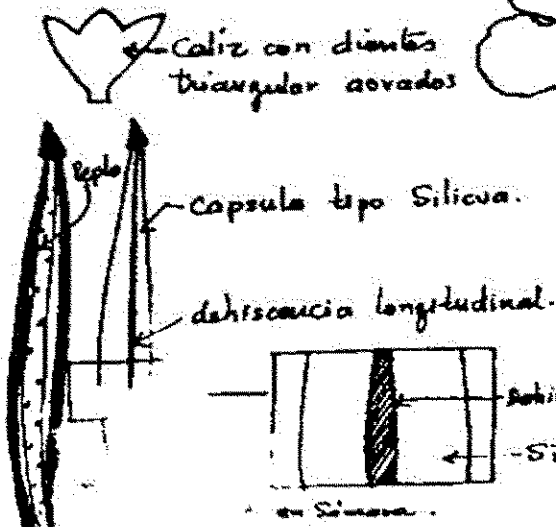 Caliz con dientes
triangular aovados
Replo
Capsula tipo Silicua.
dehiscencia longitudinal.